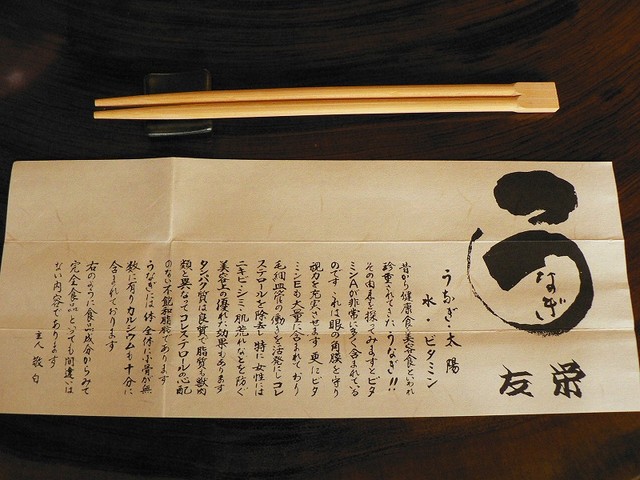 うなぎ
友栄
うなぎ・太陽
水・ビタミン
昔から健康食美容食といわれ
珍重されてきたうなぎ!!
その由来を探ってみますとビタ
ミンAが非常に多く含まれている
のです これは眼の角膜を守り
視力を充実させます 更にビタ
ミンEも大量に含まれており
毛細血管の働きを活発にしコレ
ステロールを除去し特に女性には
ニキビシミ肌荒れなどを防ぐ
美容上の優れた効果もあります
タンパク質は良質で脂質も獣肉
類と異なってコレステロールの心配
のない不飽和脂肪であります
うなぎには一体全体に小骨が無
数に有りカルシウムも十分に
含まれております
右のように食品成分からみて
完全食品といっても間違いは
ない内容であります
主人 敬白